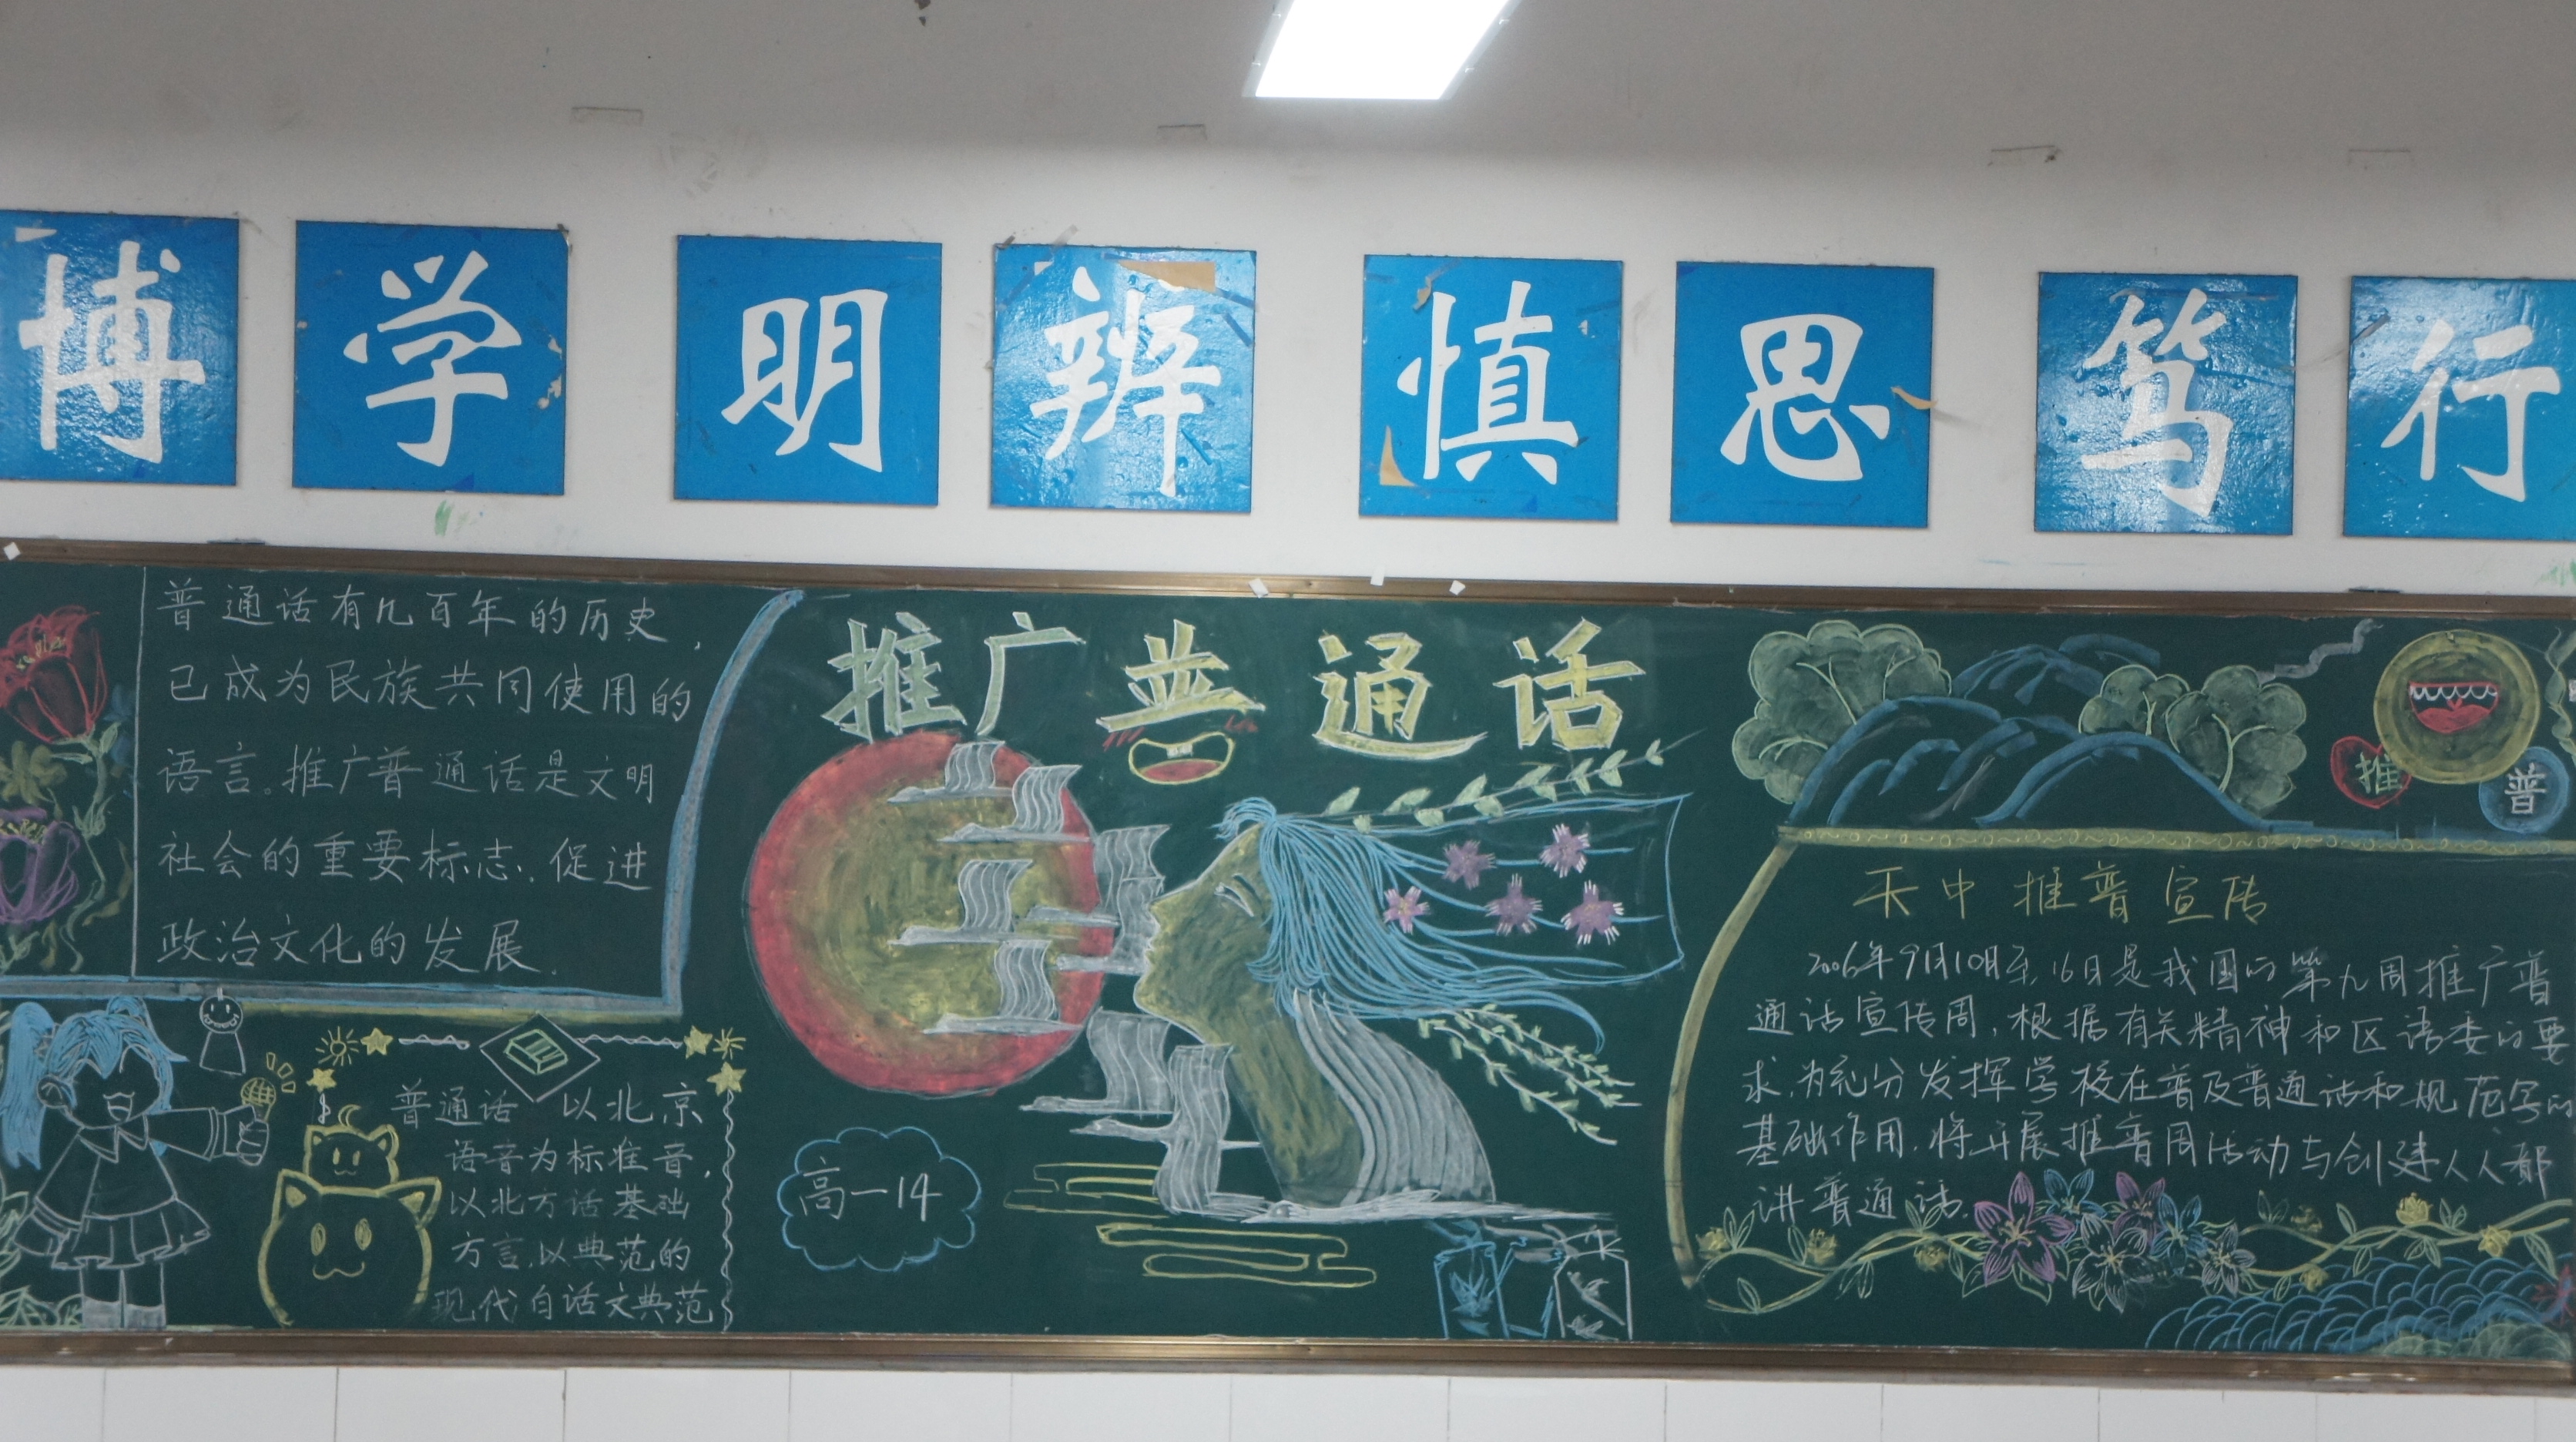 博学 明辨 慎思 笃行
普通话有几百年的历史,
已成为民族共同使用的
语言。推广普通话是文明
社会的重要标志,促进
政治文化的发展.
普通话 以北京
语音为标准音,
以北方话基础
方言,以典范的
现代白话文典范
推广普通话
高一14
推
普
天中推普宣传
2006年9月10日至16日是我国的第九周推广普
通话宣传周,根据有关精神和区语委的要
求,为充分发挥学校在普及普通话和规范字的
基础作用,将开展推普周活动与创建人人都
讲普通话.